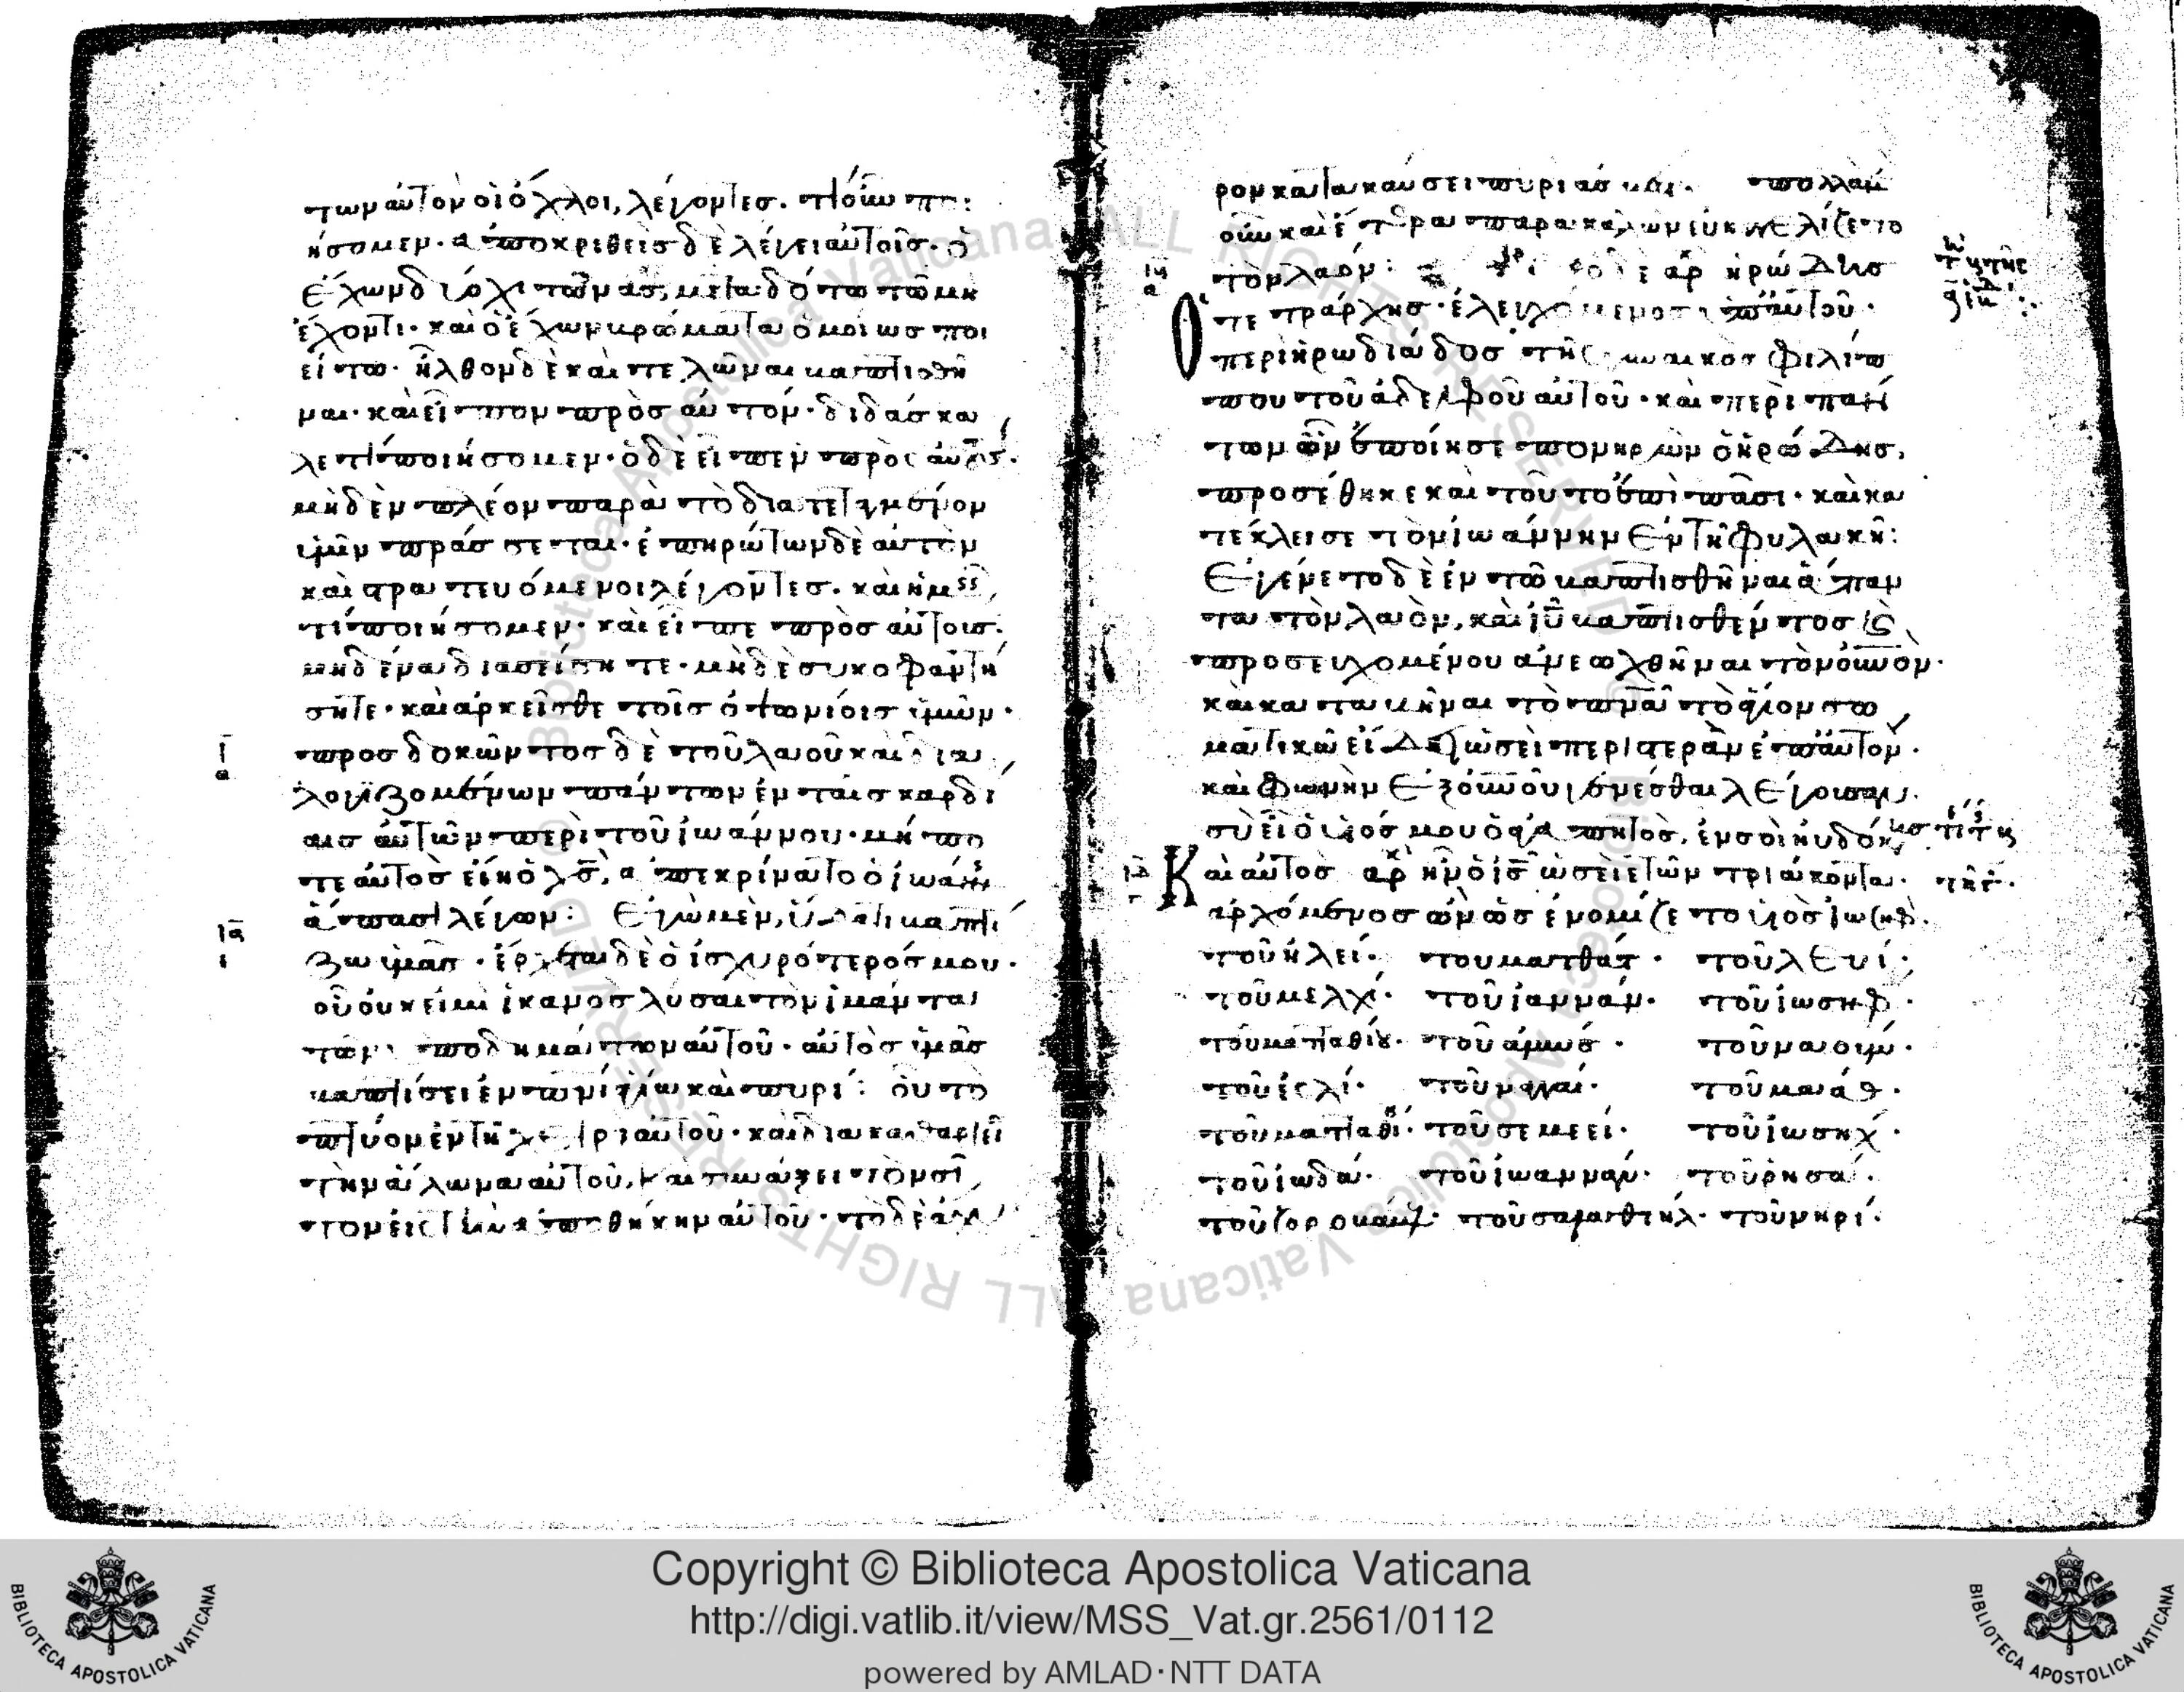 των αὐτὸν οἱ ὄχλοι, λέγοντες. τί οὖν ποι
ήσομεν. ἀποκριθεὶς δὲ λέγει αὐτοῖς. ὁ
ἔχων δύο χιτῶνας, μεταδότω τῷ μὴ
ἔχοντι. καὶ ὁ ἔχων βρώματα ὁμοίως ποι
είτω. ἦλθον δὲ καὶ τελῶναι βαπτισθῆ
ναι. καὶ εἶπον πρὸς αὐτόν. διδάσκα
λε τί ποιήσομεν. ὁ δὲ εἶπεν πρὸς αὐτούς.
μηδὲν πλέον παρὰ τὸ διατεταγμένον
ὑμῖν πράσσεται. ἐπηρώτων δὲ αὐτὸν
καὶ στρατευόμενοι λέγοντες. καὶ ἡμεῖς
τί ποιήσομεν. καὶ εἶπε πρὸς αὐτούς.
μηδένα διασείσητε. μηδὲ συκοφαντή
σητε. καὶ ἀρκεῖσθε τοῖς ὀψωνίοις ὑμῶν.
ι α
προσδοκῶντος δὲ τοῦ λαοῦ καὶ δια
λογιζομένων πάντων ἐν ταῖς καρδί
αις αὐτῶν περὶ τοῦ ἰωάννου. μήπο
τε αὐτὸς εἴη ὁ χς, ἀπεκρίνατο ὁ ἰωάννης
ἅπασι λέγων: Ἐγὼ μὲν, ὕδατι βαπτί
ια ι
ζω ὑμᾶς. ἔρχεται δὲ ὁ ἰσχυρότερός μου.
οὗ οὐκ εἰμὶ ἱκανὸς λῦσαι τὸν ἱμάντα
τῶν ὑποδημάτων αὐτοῦ. αὐτὸς ὑμᾶς
βαπτίσει ἐν πνι ἁγίω καὶ πυρί: οὗ τὸ
πτύον ἐν τῆ χειρὶ αὐτοῦ. καὶ διακαθαριεῖ
τὴν ἅλωνα αὐτοῦ, καὶ συνάξει τὸν σῖ
τον εἰς τὴν ἀποθήκην αὐτοῦ. τὸ δὲ ἄχυ
ρον κατακαύσει πυρὶ ἀσβέστω. πολλὰ μὲν
οὖν καὶ ἕτερα παρακαλῶν εὐηγγελίζετο
τὸν λαόν: ἀρ ἡρώδης
Ὁ τετράρχης. ἐλεγχόμενος ὑπ' αὐτοῦ.
περὶ ἡρωδιάδος τῆς γυναικὸς φιλίπ
που τοῦ ἀδελφοῦ αὐτοῦ. καὶ περὶ πάν
των ὧν ἐποίησε πονηρῶν ὁ ἡρώδης.
προσέθηκε καὶ τοῦτο ἐπὶ πᾶσι. καὶ κα
τέκλεισε τὸν ἰωάννην ἐν τῆ φυλακῆ:
Ἐγένετο δὲ ἐν τῶ βαπτισθῆναι ἅπαν
τα τὸν λαὸν, καὶ ιυ βαπτισθέντος καὶ
προσευχομένου ἀνεωχθῆναι τὸν οὐνον.
καὶ καταβῆναι τὸ πνα τὸ ἅγιον σω
ματικῶ εἴδει ὡσεὶ περιστερὰν ἐπ' αὐτόν.
καὶ φωνὴν ἐξ οὐνοῦ γενέσθαι λέγουσαν.
σὺ εἶ ὁ υἱός μου ὁ ἀγαπητὸς, ἐν σοὶ ηὐδόκησα
Καὶ αὐτὸς ἀρχ ἦν ὁ ις ὡσεὶ ἐτῶν τριάκοντα.
ἀρχόμενος ὢν ὡς ἐνομίζετο υἱὸς ἰωσήφ.
τοῦ ἡλεί. τοῦ ματθάτ. τοῦ λευί.
τοῦ μελχί. τοῦ ἰαννάν. τοῦ ἰωσήφ.
τοῦ ματταθίου. τοῦ ἀμώς. τοῦ ναούμ.
τοῦ ἐσλί. τοῦ ναγγαί. τοῦ μαάθ.
τοῦ ματταθίου. τοῦ σεμεεί. τοῦ ἰωσήχ.
τοῦ ἰωδά. τοῦ ἰωαννάν. τοῦ ῥησά.
τοῦ ζοροβάβελ. τοῦ σαλαθιήλ. τοῦ νηρί.
Copyright © Biblioteca Apostolica Vaticana
http://digi.vatlib.it/view/MSS_Vat.gr.2561/0112
powered by AMLAD·NTT DATA
BIBLIOTECA APOSTOLICA VATICANA
BIBLIOTECA APOSTOLICA VATICANA